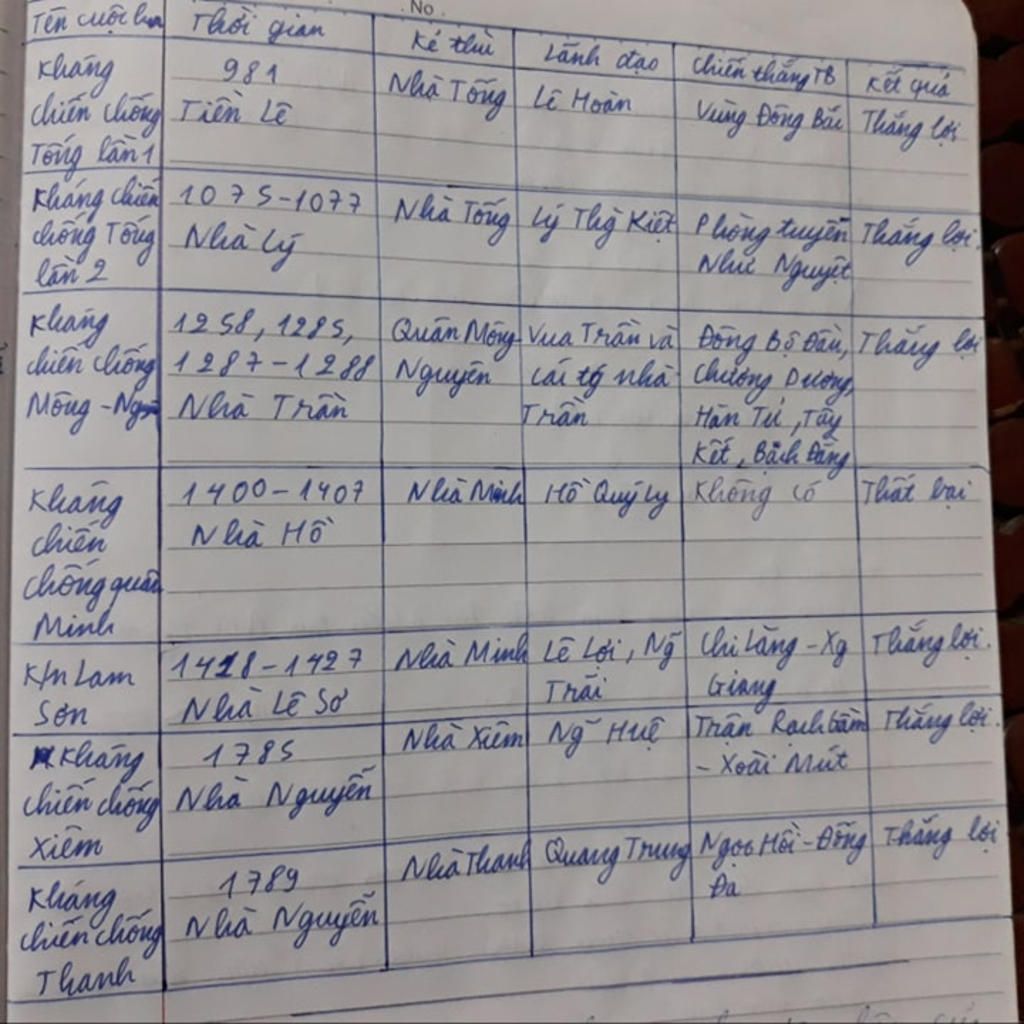 No.
Tên cuộc Thời gian Kẻ thù Lãnh đạo Chiến thắng TB Kết quả
Kháng chiến chống Tống lần 1
981
Tiền Lê
Nhà Tống
Lê Hoàn
Vùng Đông Bắc
Thắng lợi
Kháng chiến
chống Tống
lần 2
1075-1077
Nhà Lý
Nhà Tống
Lý Thg Kiệt
Phòng tuyến
Như Nguyệt
Thắng lợi.
Kháng
chiến chống
Mông-Ng
1258, 1285,
1287-1288
Nhà Trần
Quân Mông
Nguyên
Vua Trần và
các tg nhà
Trần
Đông Bộ Đầu,
Chương Dương,
Hàn Tử, Tây
Kết, Bạch Đằng
Thắng lợi
Kháng
chiến
chống quân
Minh
1400-1407
Nhà Hồ
Nhà Minh
Hồ Quý Ly
Không có
Thất bại
K/n Lam
Sơn
1418-1427
Nhà Lê Sơ
Nhà Minh
Lê Lợi, Ng̃
Trãi
Chi Lăng-Xg
Giang
Thắng lợi.
Kháng
chiến chống
Xiêm
1785
Nhà Nguyễn
Nhà Xiêm
Ng̃ Huệ
Trận Rạch Gầm
- Xoài Mút
Thắng lợi.
Kháng
chiến chống
Thanh
1789
Nhà Nguyễn
Nhà Thanh
Quang Trung
Ngọc Hồi-Đống
Đa
Thắng lợi